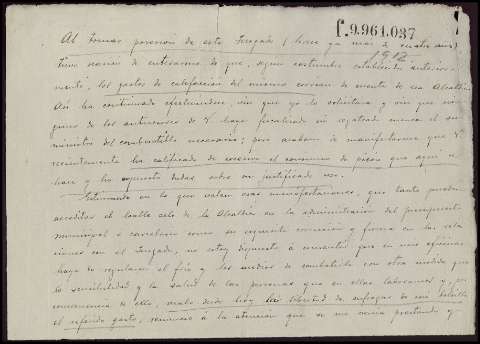 f. 9.961.037
Al tomar posesión de este Juzgado (hace ya mas de cuatro años)
1912
tuve ocasion de enterarme de que, según costumbre establecida anterior-
mente, los gastos de calefacción del mismo corrian de cuenta de esa Alcaldia
Asi ha continuado efectuandose, sin que yo lo solicitara y sin que nin-
guno de los antecesores de V. haya fiscalizado ni regateado nunca el su-
ministro del combustible necesario; pero acaban de manifestarme que V.
recientemente ha calificado de excesivo el consumo de que aqui se
hace y ha expuesto dudas sobre su justificado uso.
Estimando en lo que valen esas manifestaciones, que tanto pueden
acreditar el celo de la Alcaldia en la administracion del presupuesto
municipal ó carcelario como su exquisita correccion y forma en las rela-
ciones con el Juzgado, no estoy dispuesto á consentir que en mis oficinas
haya de regularse el frio y los medios de combatirlo con otra medida que
la sensibilidad y la salud de las personas que en ellas laboramos y, por
consecuencia de ello, desde hoy libertad de sufragar de mi bolsillo
el referido gasto, renuncio á la atencion que se me venia prestando y